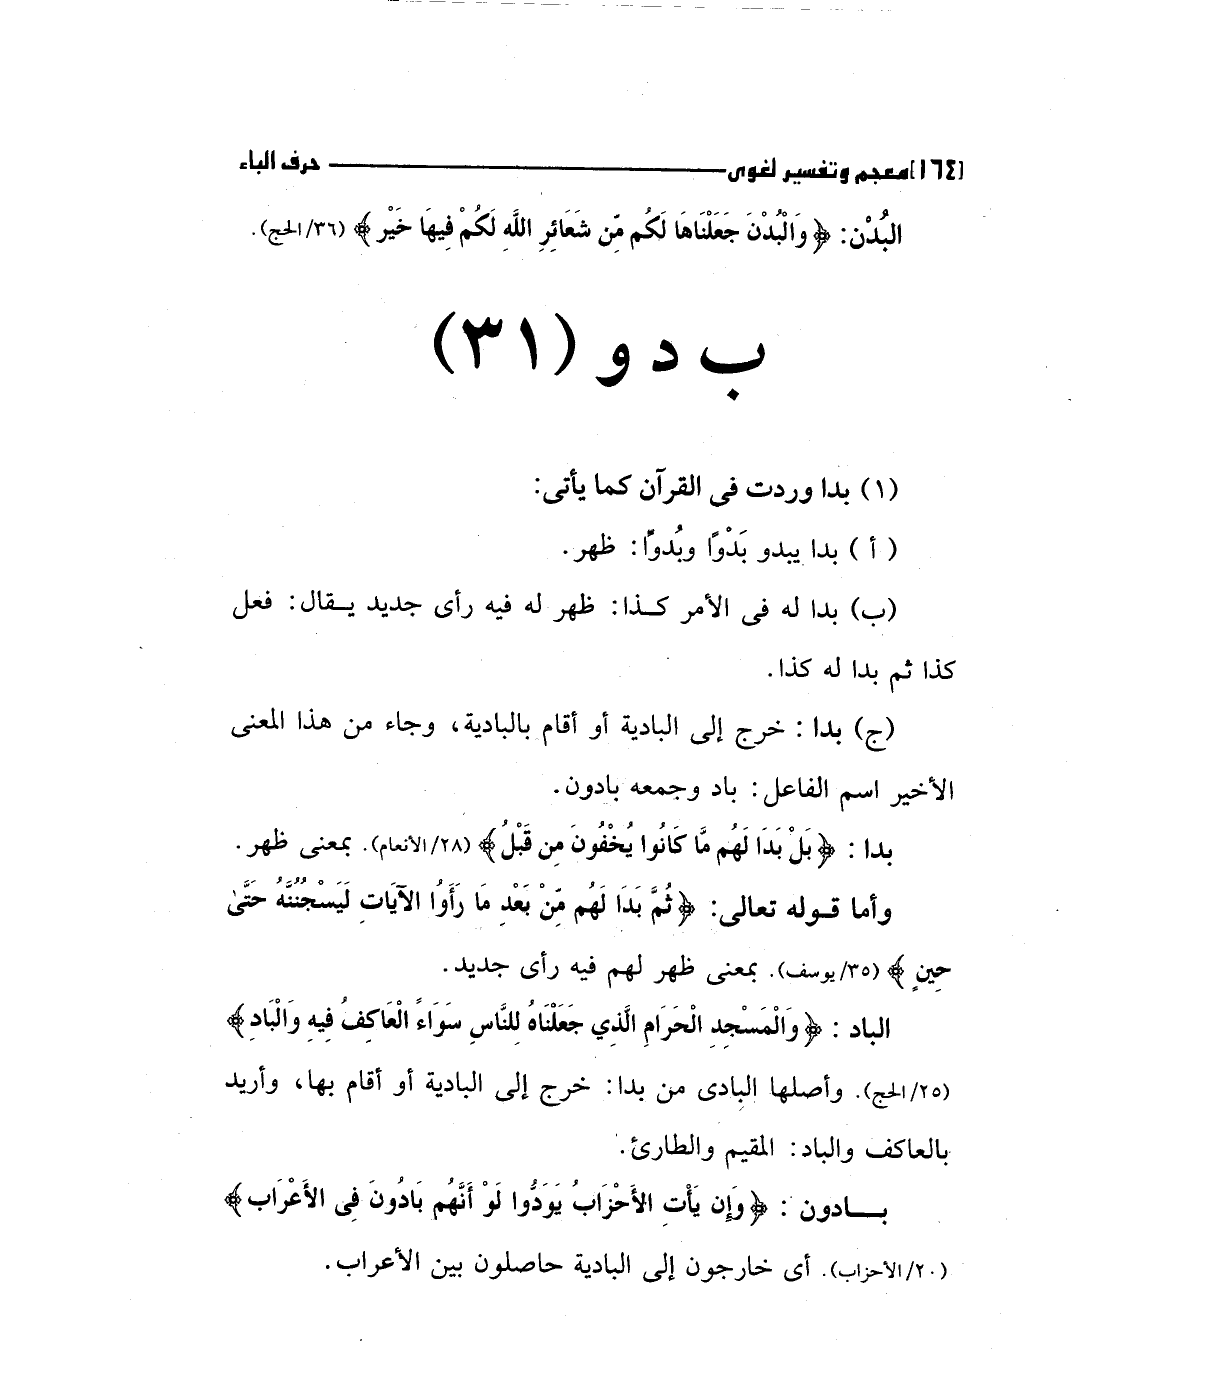 [١٦٤] معجم وتفسير لغوى حرف الباء
البُدْن: ﴿ وَالْبُدْنَ جَعَلْنَاهَا لَكُم مِّن شَعَائِرِ اللَّهِ لَكُمْ فِيهَا خَيْر ﴾ (٣٦/الحج).
ب د و (٣١)
(١) بدا وردت فى القرآن كما يأتى:
( أ ) بدا يبدو بَدْوًا وبُدوًّا: ظهر.
(ب) بدا له فى الأمر كـذا: ظهر له فيه رأى جديد يـقال: فعل
كذا ثم بدا له كذا.
(ج) بدا : خرج إلى البادية أو أقام بالبادية، وجاء من هذا المعنى
الأخير اسم الفاعل: باد وجمعه بادون.
بدا : ﴿ بَلْ بَدَا لَهُم مَّا كَانُوا يُخْفُونَ مِن قَبْلُ ﴾ (٢٨/الأنعام). بمعنى ظهر.
وأما قـوله تعالى: ﴿ ثُمَّ بَدَا لَهُم مِّنْ بَعْدِ مَا رَأَوُا الآيَاتِ لَيَسْجُنُنَّهُ حَتَّىٰ
حِينٍ ﴾ (٣٥/يوسف). بمعنى ظهر لهم فيه رأى جديد.
الباد : ﴿ وَالْمَسْجِدِ الْحَرَامِ الَّذِي جَعَلْنَاهُ لِلنَّاسِ سَوَاءً الْعَاكِفُ فِيهِ وَالْبَادِ ﴾
(٢٥/الحج). وأصلها البادى من بدا: خرج إلى البادية أو أقام بها، وأريد
بالعاكف والباد: المقيم والطارئ.
بـــادون : ﴿ وَإِن يَأْتِ الأَحْزَابُ يَوَدُّوا لَوْ أَنَّهُم بَادُونَ فِى الأَعْرَاب ﴾
(٢٠/الأحزاب). أى خارجون إلى البادية حاصلون بين الأعراب.